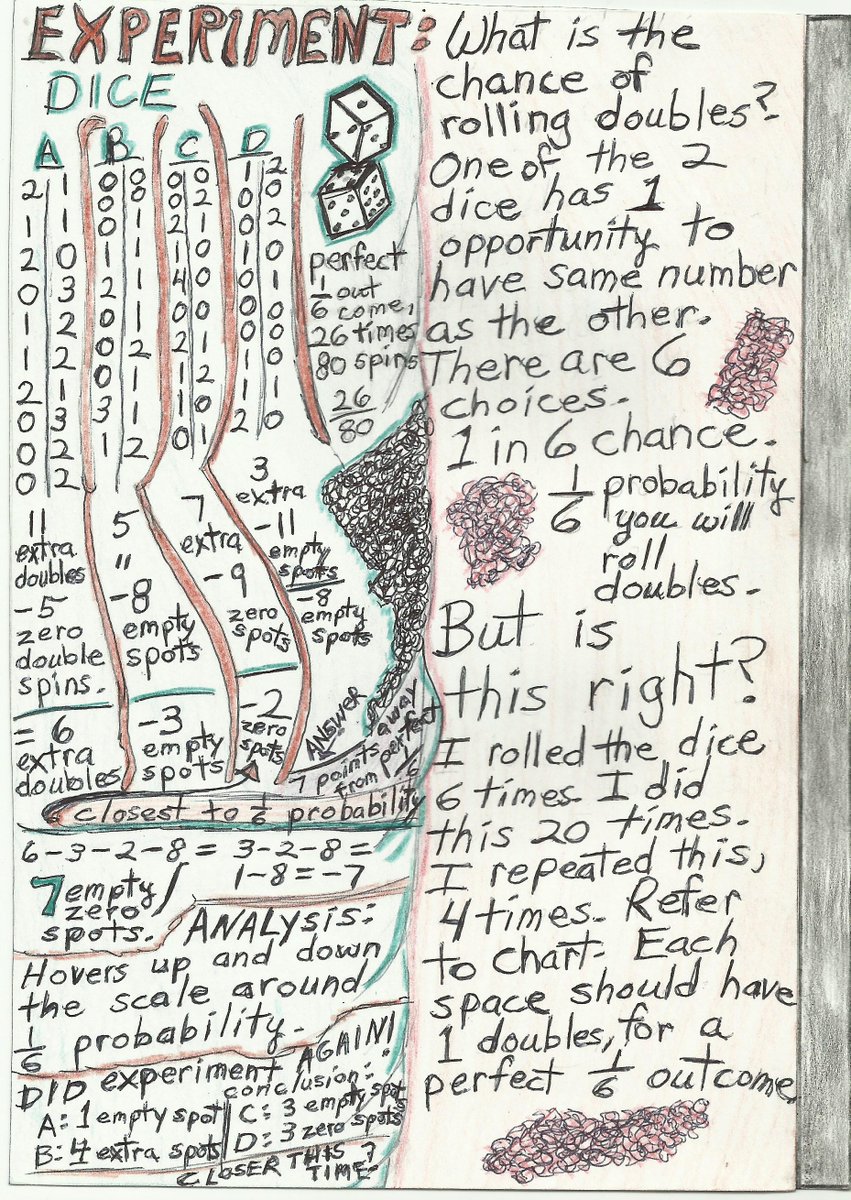 EXPERIMENT:
DICE
A B C D
2 1 0 0 0 0 1 2
1 1 0 0 0 2 0 0
2 0 0 1 2 1 0 2
0 3 1 1 1 0 0 0
1 2 2 1 4 0 1 1
1 2 0 0 0 0 0 0
2 1 0 2 2 1 0 0
0 3 0 1 1 2 1 1
0 2 3 1 1 0 1 1
0 2 1 2 0 1 2 0
perfect
1/6 out
come,
26 times
80 spins
26/80
11
extra
doubles
-5
zero
double
spins.
= 6
extra
doubles
5
"
-8
empty
spots
-3
empty
spots
7
extra
-9
zero
spots
-2
zero
spots
3
extra
-11
empty
spots
-8
empty
spots
ANSWER
7 points away
from perfect
1/6
closest to 1/6 probability
6-3-2-8 = 3-2-8 =
1-8 = -7
7 empty/
zero
spots.
ANALYSIS:
Hovers up and down
the scale around
1/6 probability.
DID experiment AGAIN!
conclusion:
A: 1 empty spot
B: 4 extra spots
C: 3 empty spot
D: 3 zero spots
CLOSER THIS
TIME?
What is the
chance of
rolling doubles?
One of the 2
dice has 1
opportunity to
have same number
as the other.
There are 6
choices.
1 in 6 chance.
1/6 probability
you will
roll
doubles.
But is
this right?
I rolled the dice
6 times. I did
this 20 times.
I repeated this,
4 times. Refer
to chart. Each
space should have
1 doubles, for a
perfect 1/6 outcome